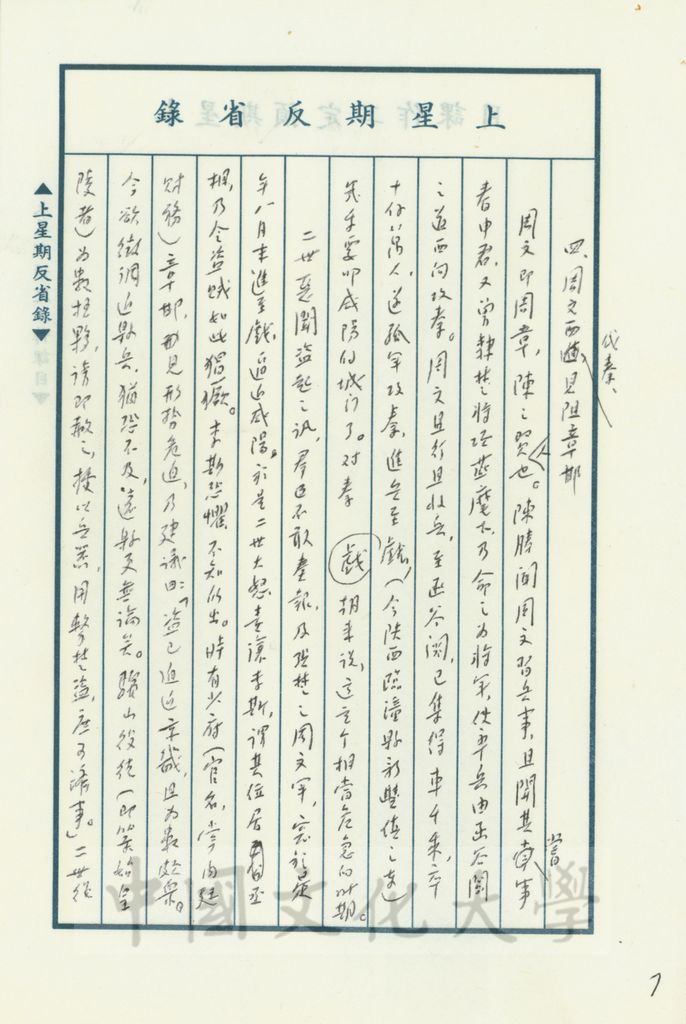 上星期反省錄
四、周文西進伐秦、見阻章邯
周文即周章,陳之賢人也。陳勝聞周文習兵事,且聞其嘗事
春申君,又曾隸楚將項燕麾下,乃命之為將軍,使率兵由函谷關
之道西向攻秦。周文且行且收兵,至函谷關,已集得車千乘,卒
十餘萬人,遂孤軍攻秦,進兵至戲,(今陝西臨潼縣新豐鎮之東)
幾乎要叩咸陽的城門了。對秦朝來說,這是個相當危急的時期。
二世惡聞盜起之訊,群臣不敢盡報,及張楚之周文軍,竟於是
年八月末進至戲,逼近咸陽。於是二世大怒,責讓李斯,謂其位居丞
相,乃令盜賊如此猖獗。李斯恐懼,不知所出。時有少府(官名,掌內廷
財務)章邯,毋見形勢危迫,乃建議曰:「盜已迫近京畿,且為數眾。
今欲徵調近縣兵,猶恐不及,遠縣更無論矣。驪山役徒(即築始皇
陵者)為數極夥,請即赦之,授以兵器,用擊楚盜,庶可濟事。」二世從
▲上星期反省錄▼
中國文化大學
7